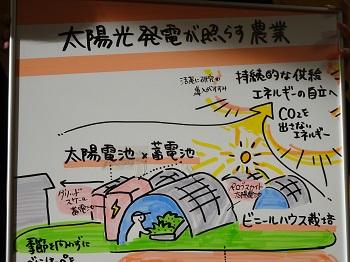 太陽光発電が照らす農業
持続的な供給
エネルギーの自立へ
CO2を
出さない
エネルギー
太陽電池×蓄電池
グリッド
スケール
蓄電
ペロブスカイト
太陽電池
ビニールハウス栽培
季節を問わずに